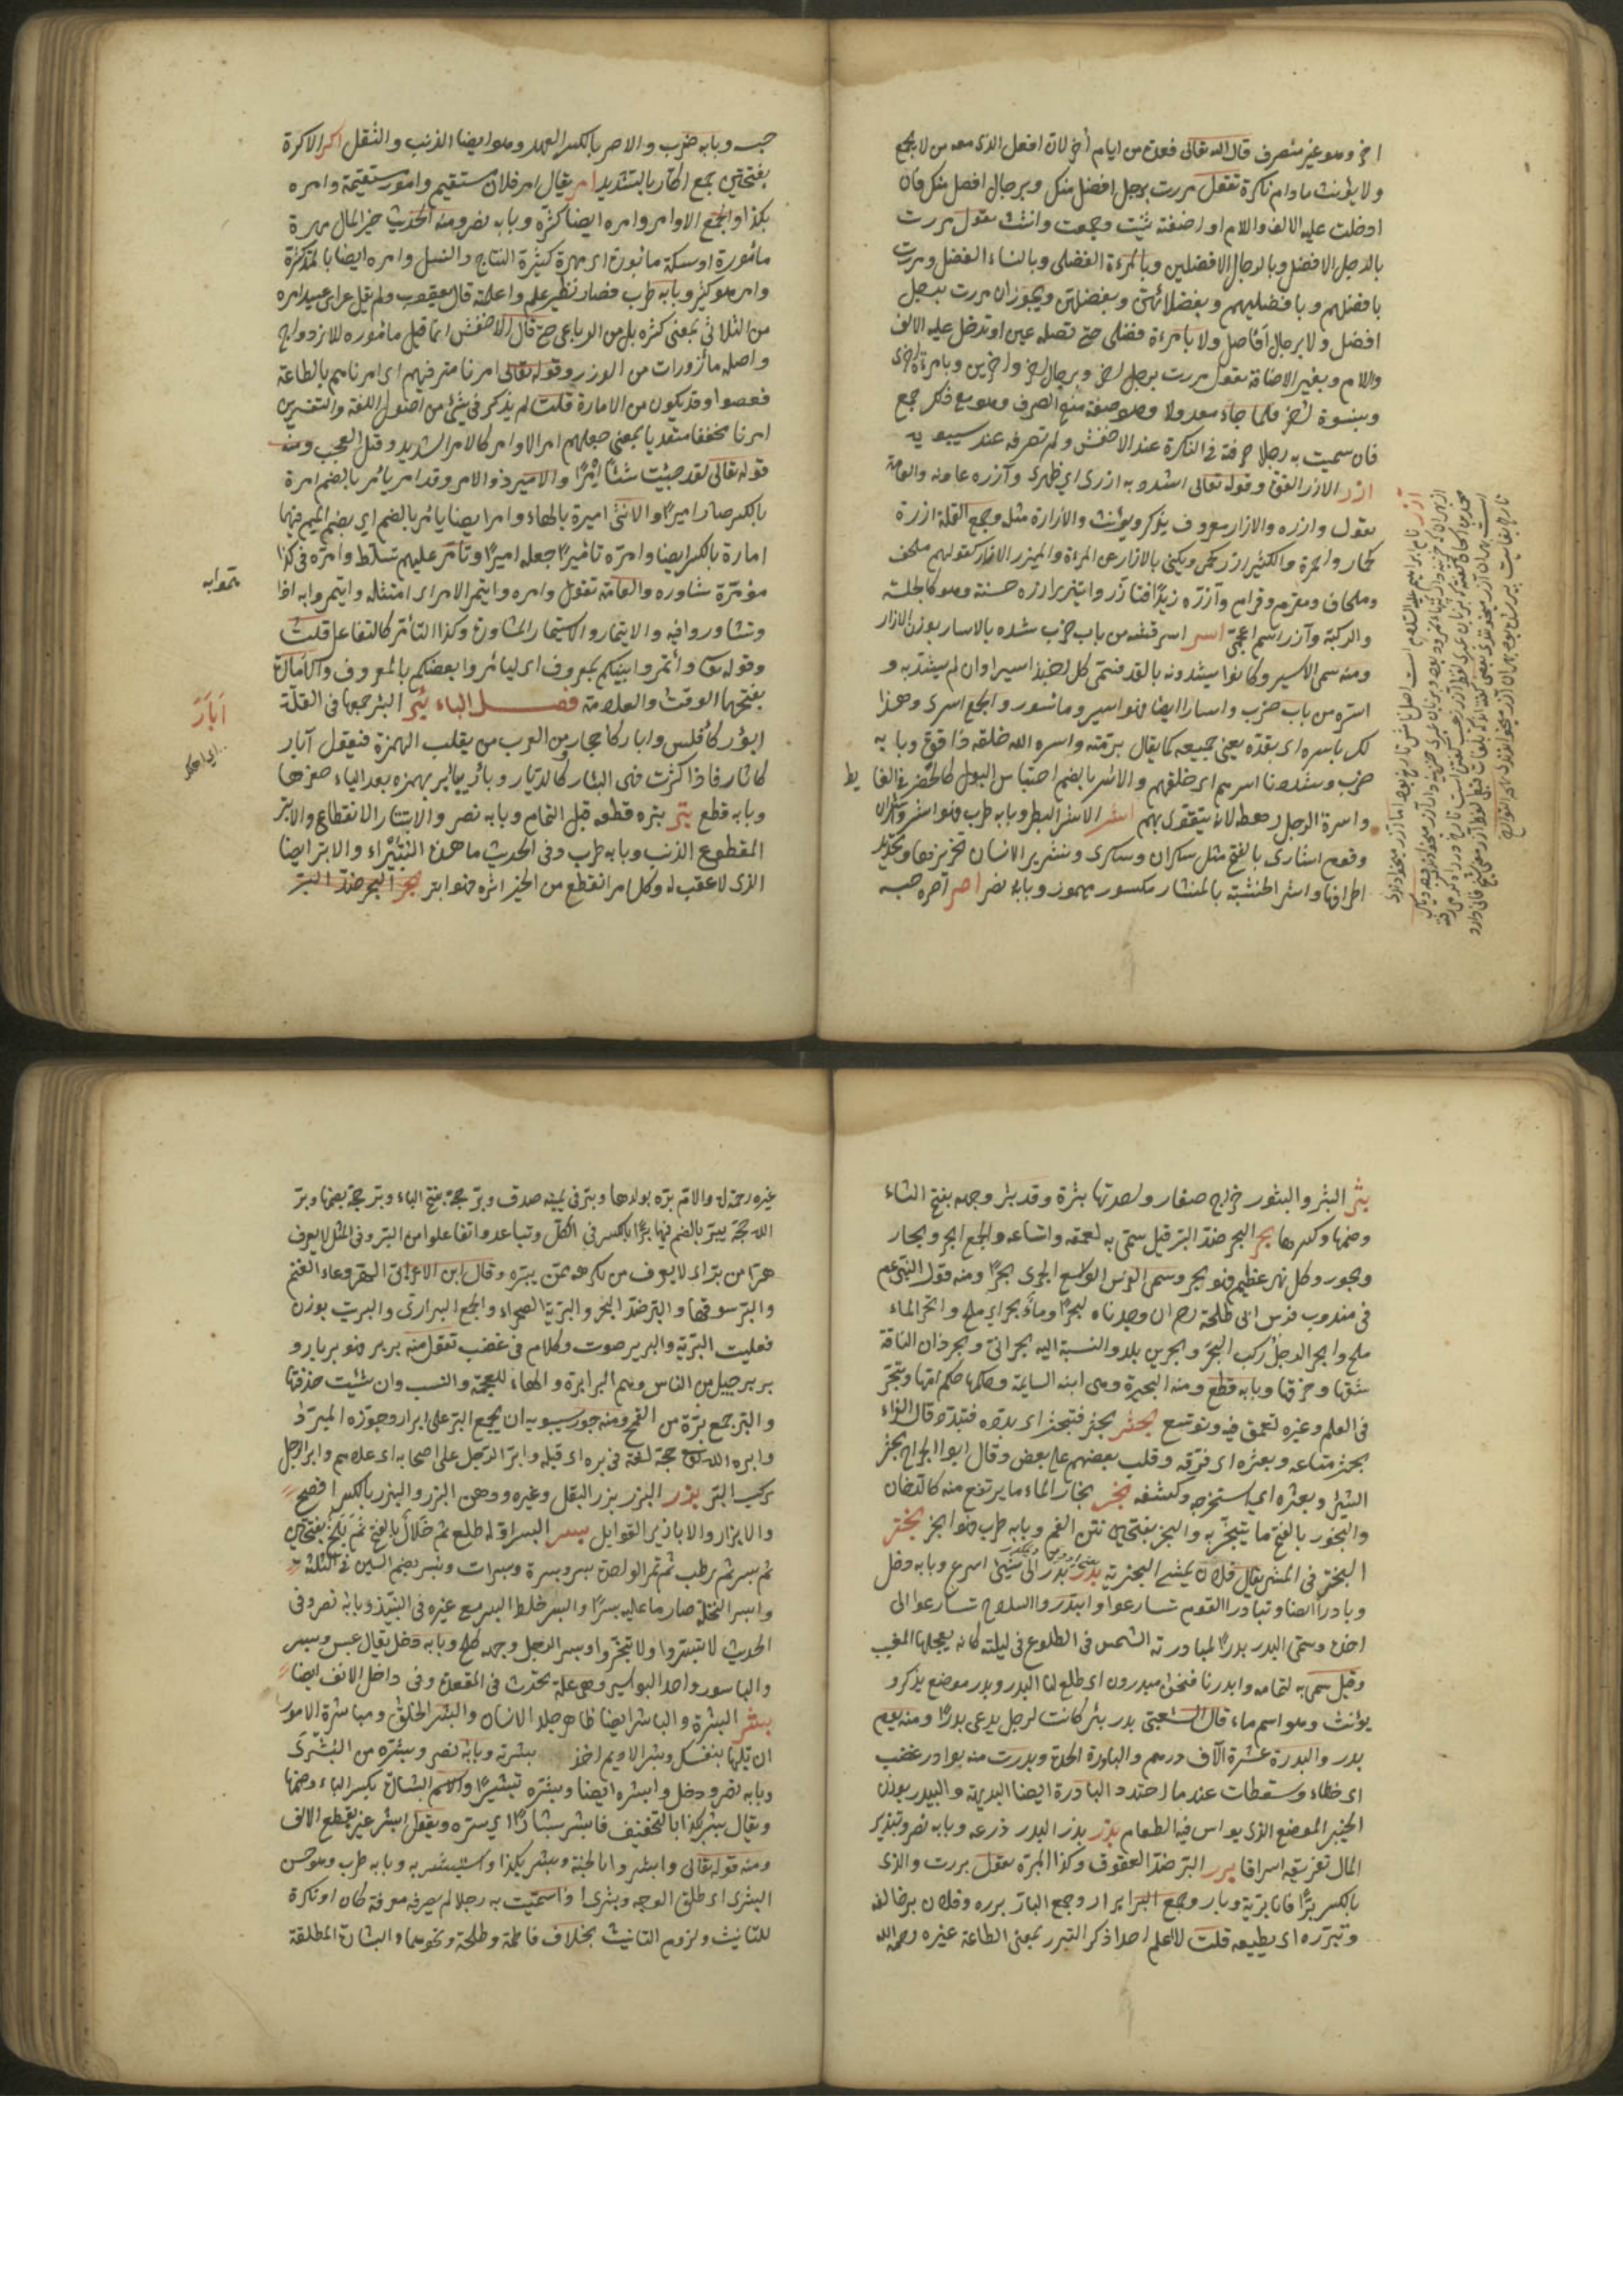 اخر وهو غير منصرف قال الله تعالى فعدة من ايام أخر لان افعل الذى معه من لا يجمع
ولا يؤنث مادام نكرة تقول مررت برجل افضل منك وبرجال افضل منك فان
ادخلت عليه الالف واللام او اضفته ثنيت وجمعت وانثت تقول مررت
بالرجل الافضل وبالرجال الافضلين وبالمرءة الفضلى وبالنساء الفضل ومررت
بافضلهم وبافضليهم وبفضلائهن وبفضلهن ويجوز ان مررت برجل
افضل ولا برجال افاضل ولا بامراة فضلى حتى تصله بمن او تدخل عليه الالف
واللام وبغير الاضافة تقول مررت برجل اخر وبرجال اخر واخرين وبامرءة اخرى
وبنسوة اخر فلما جاء معدولا وهو صفة منع الصرف وهو مع ذلك جمع
فان سميت به رجلا صرفته فى النكرة عند الاخفش ولم تصرفه عند سيبويه
ازر الازر القوة وقوله تعالى اشدد به ازرى اي ظهرى وآزره عاونه والعامة
تقول وازره والازار معروف يذكر ويؤنث والازارة مثله وجمع القلة ازرة
كحمار واحمرة والكثير ازر كحمر ويكنى بالازار عن المراة والميزر الازار كقولهم ملحف
ولحاف ومقرم وقرام وآزره تأزيرا فتأزر وايتزر ازره حسنة وهو كالجلسة
والركبة وآزر اسم اعجمى اسر اسر قتبه من باب ضرب شده بالاسار بوزن الازار
ومنه سمى الاسير وكانوا يشدونه بالقد فسمى كل اخيذ اسيرا وان لم يشد به و
اسره من باب ضرب واسارا ايضا فهو اسير وماسور والجمع اسرى وهذا
لك باسره اى بقده يعنى جميعه كما يقال برمته واسره الله خلقه ذا قوة وبابه
ضرب وشددنا اسرهم اى خلقهم والاسر بالضم احتباس البول كالحصر فى الغايط
واسرة الرجل رهطه لانه يتقوى بهم اشر الاشر البطر وبابه طرب فهو اشر واشران
وقوم اشارى بالفتح مثل سكران وسكارى وتاشير الانسان تحزيزها وتحديد
اطرافها واشر الخشبة بالمنشار مكسور مهموز وبابه نصر اصر آصره حبسه
حبسه وبابه ضرب والاصر بالكسر العهد وهو ايضا الذنب والثقل اكر الاكرة
بفتحتين جمع اكار بالتشديد امر يقال امر فلان مستقيم وامور مستقيمة وامره
بكذا والجمع الاوامر وامره ايضا كثره وبابه نصر ومنه الحديث خير المال مهرة
مأمورة او سكة مأبورة اى مهرة كثيرة النتاج والنسل وامره ايضا بالمد كثرة
وامر هو كثر وبابه طرب فصار نظير علم واعلمته قال يعقوب ولم يقل عن ابى عبيد امره
من الثلاثى بمعنى كثره بل من الرباعى حتى قال الاخفش انما قيل مامورة للازدواج
واصله مأزورات من الوزر وقوله تعالى امرنا مترفيهم اى امرناهم بالطاعة
فعصوا وقد يكون من الامارة قلت لم يذكر فى شئ من اصول اللغة والتفسير
امرنا مخففا متعديا بمعنى جعلهم امراء والامر كالامر الشديد وقيل العجب ومنه
قوله تعالى لقد جئت شيئا إمرا والامير ذو الامر وقد امر يأمر بالضم امرة
بالكسر صار اميرا والانثى اميرة بالهاء وامر ايضا يامر بالضم اي بضم الميم فيهما
امارة بالكسر ايضا وامره تاميرا جعله اميرا وتامر عليهم تسلط وامره فى كذا
مؤامرة شاوره والعامة تقول وامره وايتمر الامر اى امتثله وايتمروا به اذا
وتشاوروا فيه والايتمار والاستيمار المشاورة وكذا التأمر كالتفاعل قلت
وقوله تعالى وأتمروا بينكم بمعروف اى ليأمر بعضكم بالمعروف والامارة
بفتحهما الوقت والعلامة فصل الباء بئر البئر جمعها فى القلة
ابؤر كأفلس وابار كأحجار ومن العرب من يقلب الهمزة فيقول آبار
كآثار فاذا كثرت فهى البئار كالديار وبأر بيأر بهمزه بعد الياء حفرها
وبابه قطع بتر بتره قطعه قبل التمام وبابه نصر والانبتار الانقطاع والابتر
المقطوع الذنب وبابه طرب وفى الحديث ما هذه البتيراء والابتر ايضا
الذى لا عقب له وكل امر انقطع من الخير اثره فهو ابتر بحر البحر ضد البر
أبَأرَ
بثر البثر والبثور خراج صغار واحدتها بثرة وقد بثر وجهه بفتح الثاء
وضمها وكسرها بحر البحر ضد البر قيل سمى به لعمقه واتساعه والجمع ابحر وبحار
وبحور وكل نهر عظيم فهو بحر وسمى الفرس الواسع الجرى بحرا ومنه قول النبى عم
فى مندوب فرس ابى طلحة رضى ان وجدناه لبحرا وماء بحر اى ملح وابحر الماء
ملح وابحر الرجل ركب البحر وبحرين بلد والنسبة اليه بحرانى وبحر ذان الناقة
شقها وخرقها وبابه قطع ومنه البحيرة وهى ابنة السايبة وحكمها حكم امها وتبحر
فى العلم وغيره تعمق فيه وتوسع بحثر بحثر فتبحثر اى بدده فتبدد قال الفراء
بحثر متاعه وبعثره اى فرقه وقلب بعضهم على بعض وقال ابو الجراح بحثر
الشئ وبعثره اى استخرجه وكشفه بخر بخار الماء ما يرتفع منه كالدخان
والبخور بالفتح ما يتبخر به والبخر بفتحتين نتن الفم وبابه طرب فهو ابخر بختر
البختر فى المشى يقال فلان يمشى البخترية بدر بدر الى شيئ اسرع وبابه دخل
وبادر ايضا وتبادر القوم تسارعوا وابتدروا السلاح تسارعوا الى
اخذه وسمى البدر بدرا لمبادرته الشمس فى الطلوع فى ليلته كانه يعجلها المغيب
وقيل سمى به لتمامه وابدرنا فنحن مبدرون اى طلع لنا البدر وبدر موضع يذكر و
يؤنث وهو اسم ماء قال الشعبى بدر بئر كانت لرجل يدعى بدرا ومنه يوم
بدر والبدرة عشرة آلاف درهم والبادرة الحدة وبدرت منه بوادر غضب
اى خطاء وسقطات عند ما احتد والبادرة ايضا البديهة والبيدر بوزن
الخيبر الموضع الذى يداس فيه الطعام بذر بذر البذر ذرعه وبابه نصر وتبذير
المال تفريقه اسرافا برر البر ضد العقوق وكذا المبرة تقول بررت والدى
بالكسر برا فانا بر به وبار وجمع البر ابرار وجمع البار بررة وفلان بر خالقه
وتبرره اى يطيعه قلت لا اعلم احدا ذكر التبرر بمعنى الطاعة غيره رحمه الله
غيره رحمه الله والام برة بولدها وبر فى يمينه صدق وبر حجه بفتح الباء وبر حجه بضمها وبر
الله حجه يبر بالضم فيها برا بالكسر فى الكل وتباعدوا تفاعلوا من البر وفى المثل لا يعرف
هرا من بر اى لا يعرف من يكرهه ممن يبره وقال ابن الاعرابى الهر دعاء الغنم
والبر سوقها والبر ضد البحر والبرية الصحراء والجمع البرارى والبريت بوزن
فعليت البرية والبربر صوت وكلام فى غضب تقول منه بربر فهو بربار و
بربر جيل من الناس وهم البرابرة والهاء للعجمة والنسب وان شئت حذفتها
والبر جمع برة من القمح ومنع سيبويه ان يجمع البر على ابرار وجوزه المبرد
وابره الله حجه لغة فى بره اى قبله وابر الرجل على اصحابه اى علاهم وابر الرجل
ركب البر بزر البزر بزر البقل وغيره ودهن البزر والبزر بالكسر افصح
والابزار والابازير التوابل بسر البسر اوله طلع ثم خلال بالفتح ثم بلح بفتحتين
ثم بسر ثم رطب ثم تمر الواحدة بسر وبسرة وبسرات وبسر بضم السين فى الثلثة
وابسر النخل صار ما عليه بسرا والبسر خلط البسر مع غيره فى النبيذ وبابه نصر وفى
الحديث لا تبسروا ولا تثجروا وبسر الرجل وجهه كلح وبابه دخل يقال عبس وبسر
والباسور واحد البواسير وهى علة تحدث فى المقعدة وفى داخل الانف ايضا
بشر البشرة والبشر ايضا ظاهر جلد الانسان والبشر الخلق ومباشرة الامور
ان تليها بنفسك وبشر الاديم اخذ بشرته وبابه نصر وبشره من البشرى
وبابه نصر ودخل وابشره ايضا وبشره تبشيرا والاسم البشارة بكسر الباء وضمها
ويقال بشر بكذا بالتخفيف فابشر بشارا اى سره ويقول ابشر بخير بقطع الالف
ومنه قوله تعالى وابشروا بالجنة وبشر بكذا واستبشر به وبابه طرب وهو حسن
البشرى اى طلق الوجه وبشرى اذا سميت به رجلا لم يصرفه معرفة كان او نكرة
للتانيث ولزوم التانيث بخلاف فاطمة وطلحة ونحوهما والبشارة المطلقة